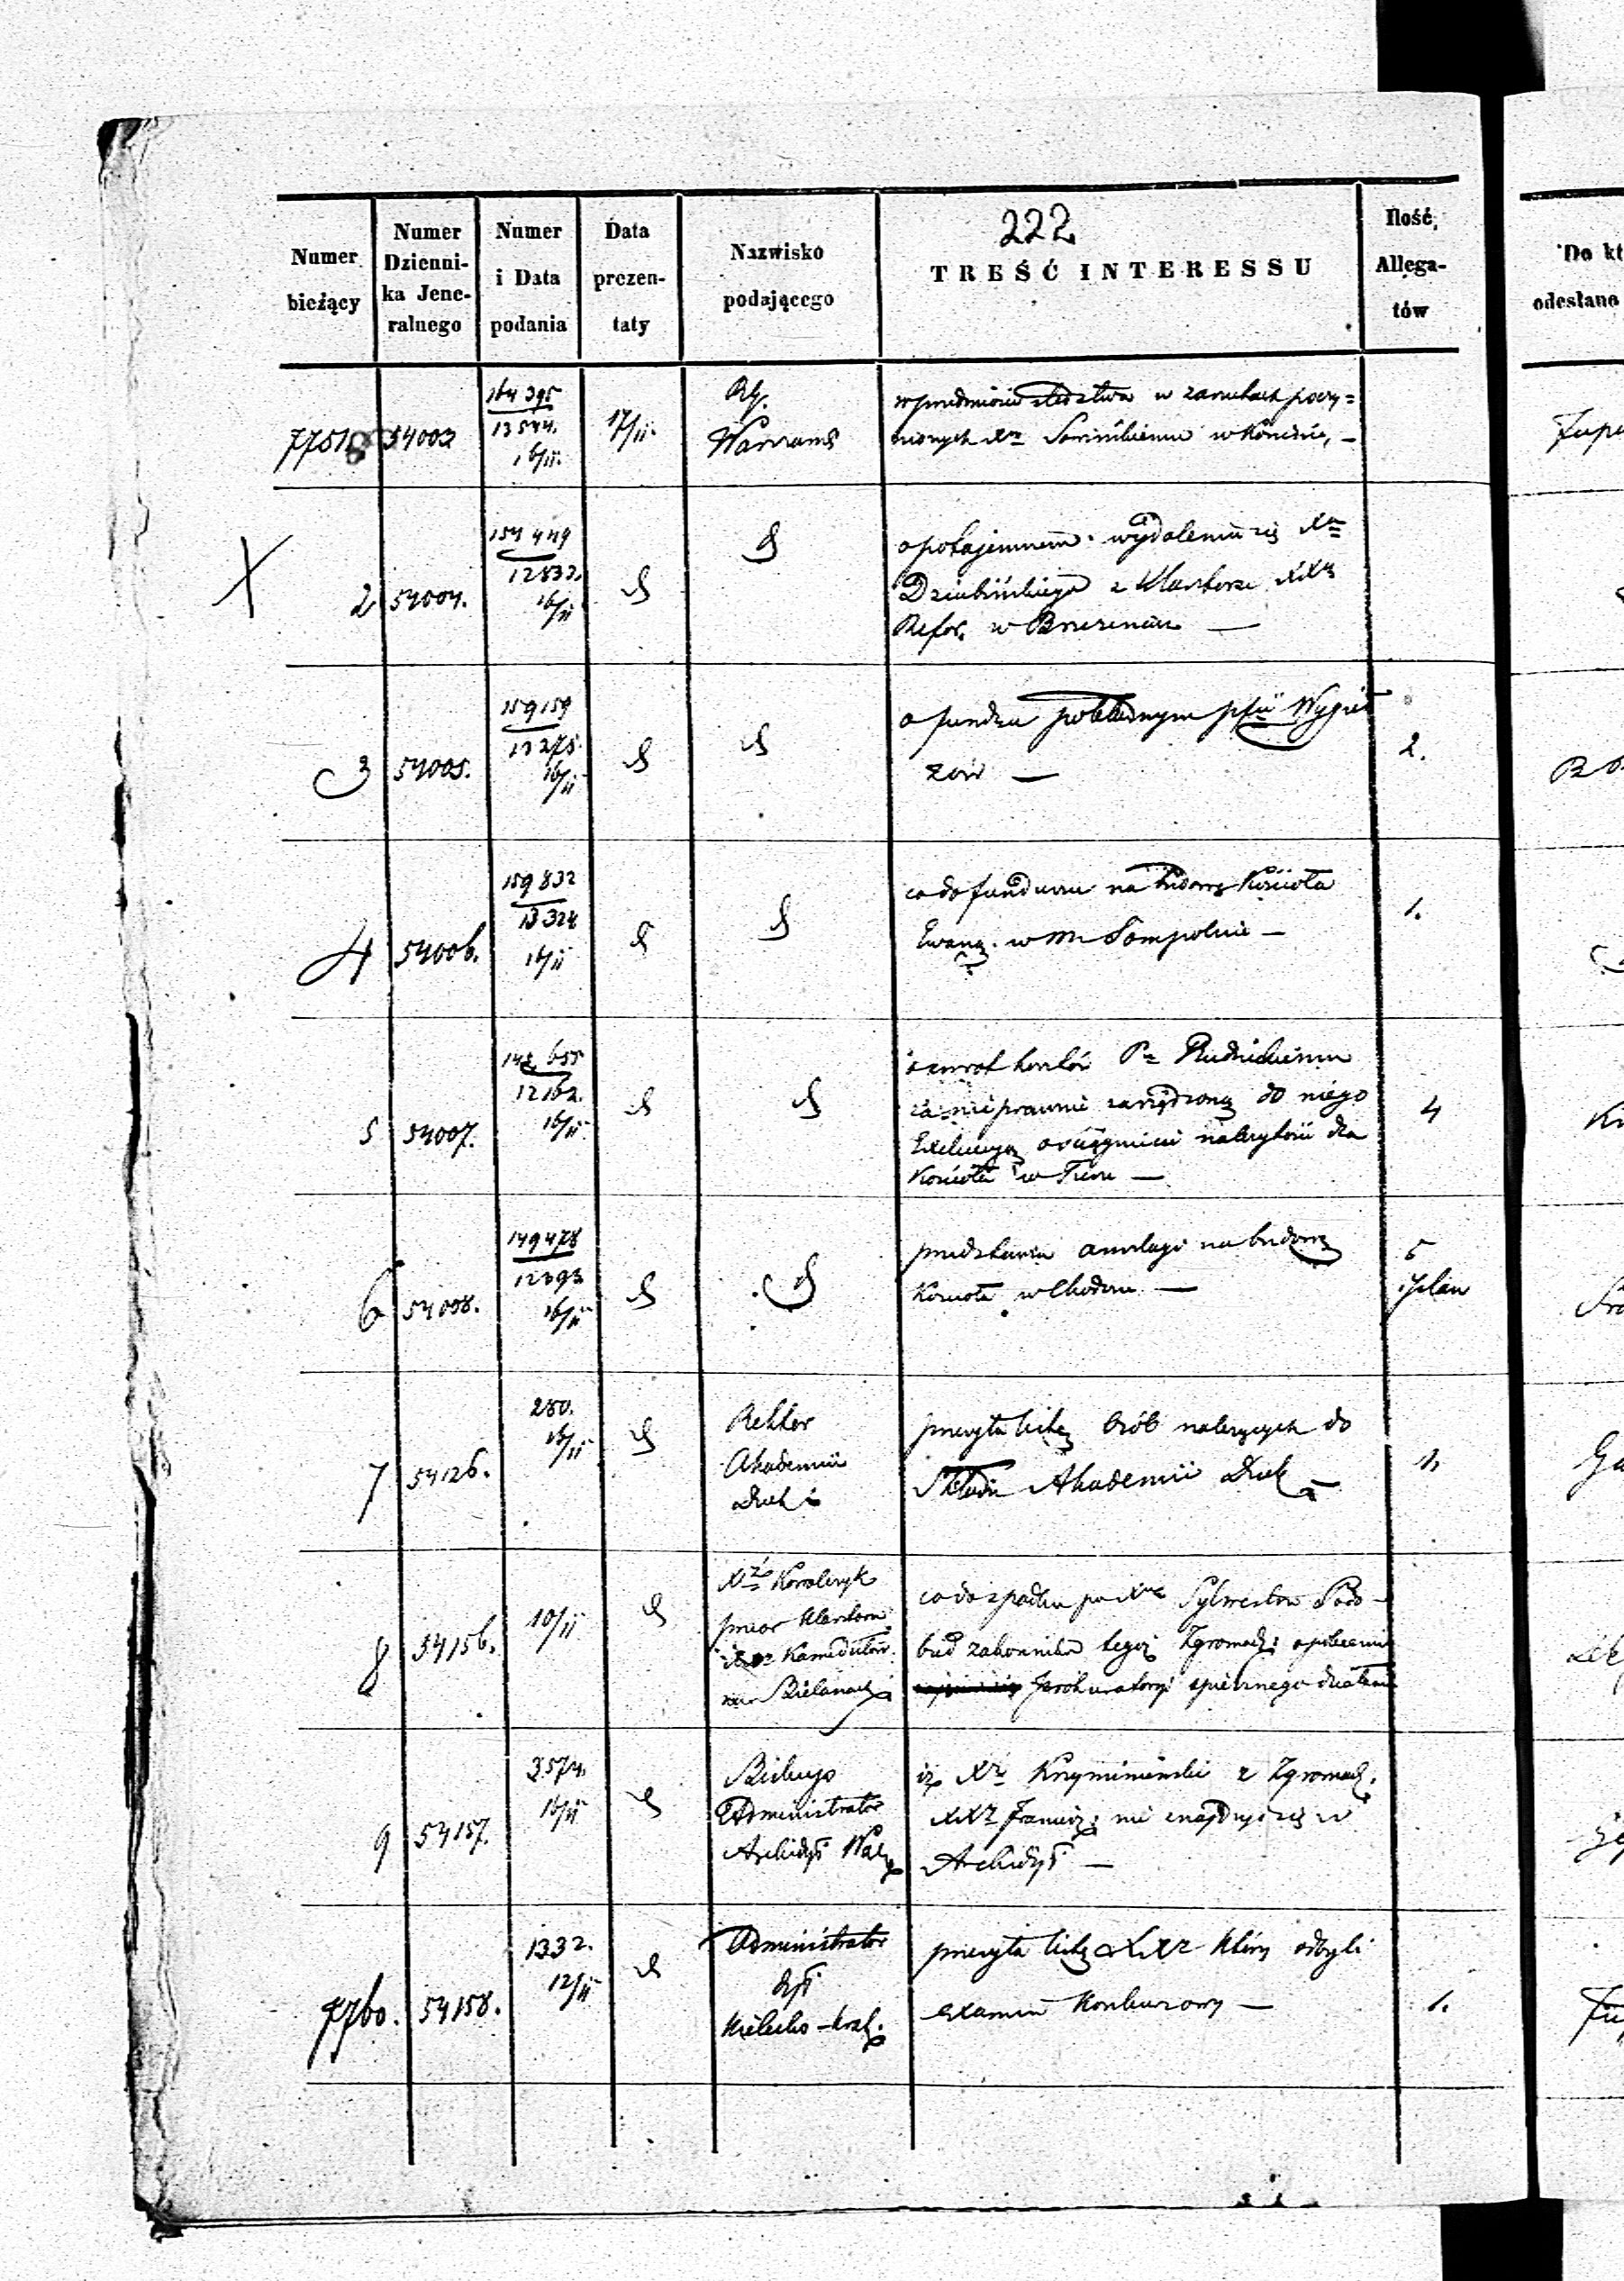 222
Numer bieżący
Numer Dzienni-ka Jene-ralnego
Numer i Data podania
Data prezen-taty
Nazwisko podającego
TREŚĆ INTERESSU
Ilość Allega-tów
Do kt
odesłano
7751 54003
164 395
13544.
16/11.
17/11.
Rg.
Warszaws
w przedmiocie śledztwa w zarzutach poczy=
nionych Xu w Koninie, —
2 54004.
154 449
12832.
16/11
o potajemnem wydaleniu się Xa
Dziubińskiego z Klasztoru XX
Refor. w Brzezinach —
3 54005.
159159
13275.
16/11
o funduszu pokładnym pfii Wygieł
zów —
2.
4 54006.
159 832
13324
16/11
co do funduszu na budowę Kościoła
Ewang. w m Sompolnie —
1.
5 54007.
148 655
12162.
16/11
o zwrot kosztów Pu Rudnickiemu
za nieprawnie zarządzoną do niego
Exekucyą o należytości dla
Kościoła w —
4
6 54008.
149478
12393
16/11
przedstawia anszlagi na budowę
Kościoła w Chodowie —
5
i plan
7 54126.
280.
16/11
Rektor
Akademii
Duch
przesyła listę osób należących do
Składu Akademii Duch —
1.
8 54156.
10/11
Xz Kowalczyk
przeor klasztoru
Xz Kamedułów
na Bielanach
co do spadku po Xdz Sylwestrze Podo-
bud zakonniku tegoż Zgromadz: o polecenie
Prokuratoryi spiesznego działania
9 54157.
3574.
16/11
Biskup
Administrator
Archidyi War
iż Xz Krzymiński z Zgromadz.
XXz Francisz: nie znajduje się w
Archidyi —
7760. 54158.
1332.
12/11
Administrator
dyi
Kielecko-krak.
przesyła listę XXz którzy odbyli
examin konkursowy —
1.